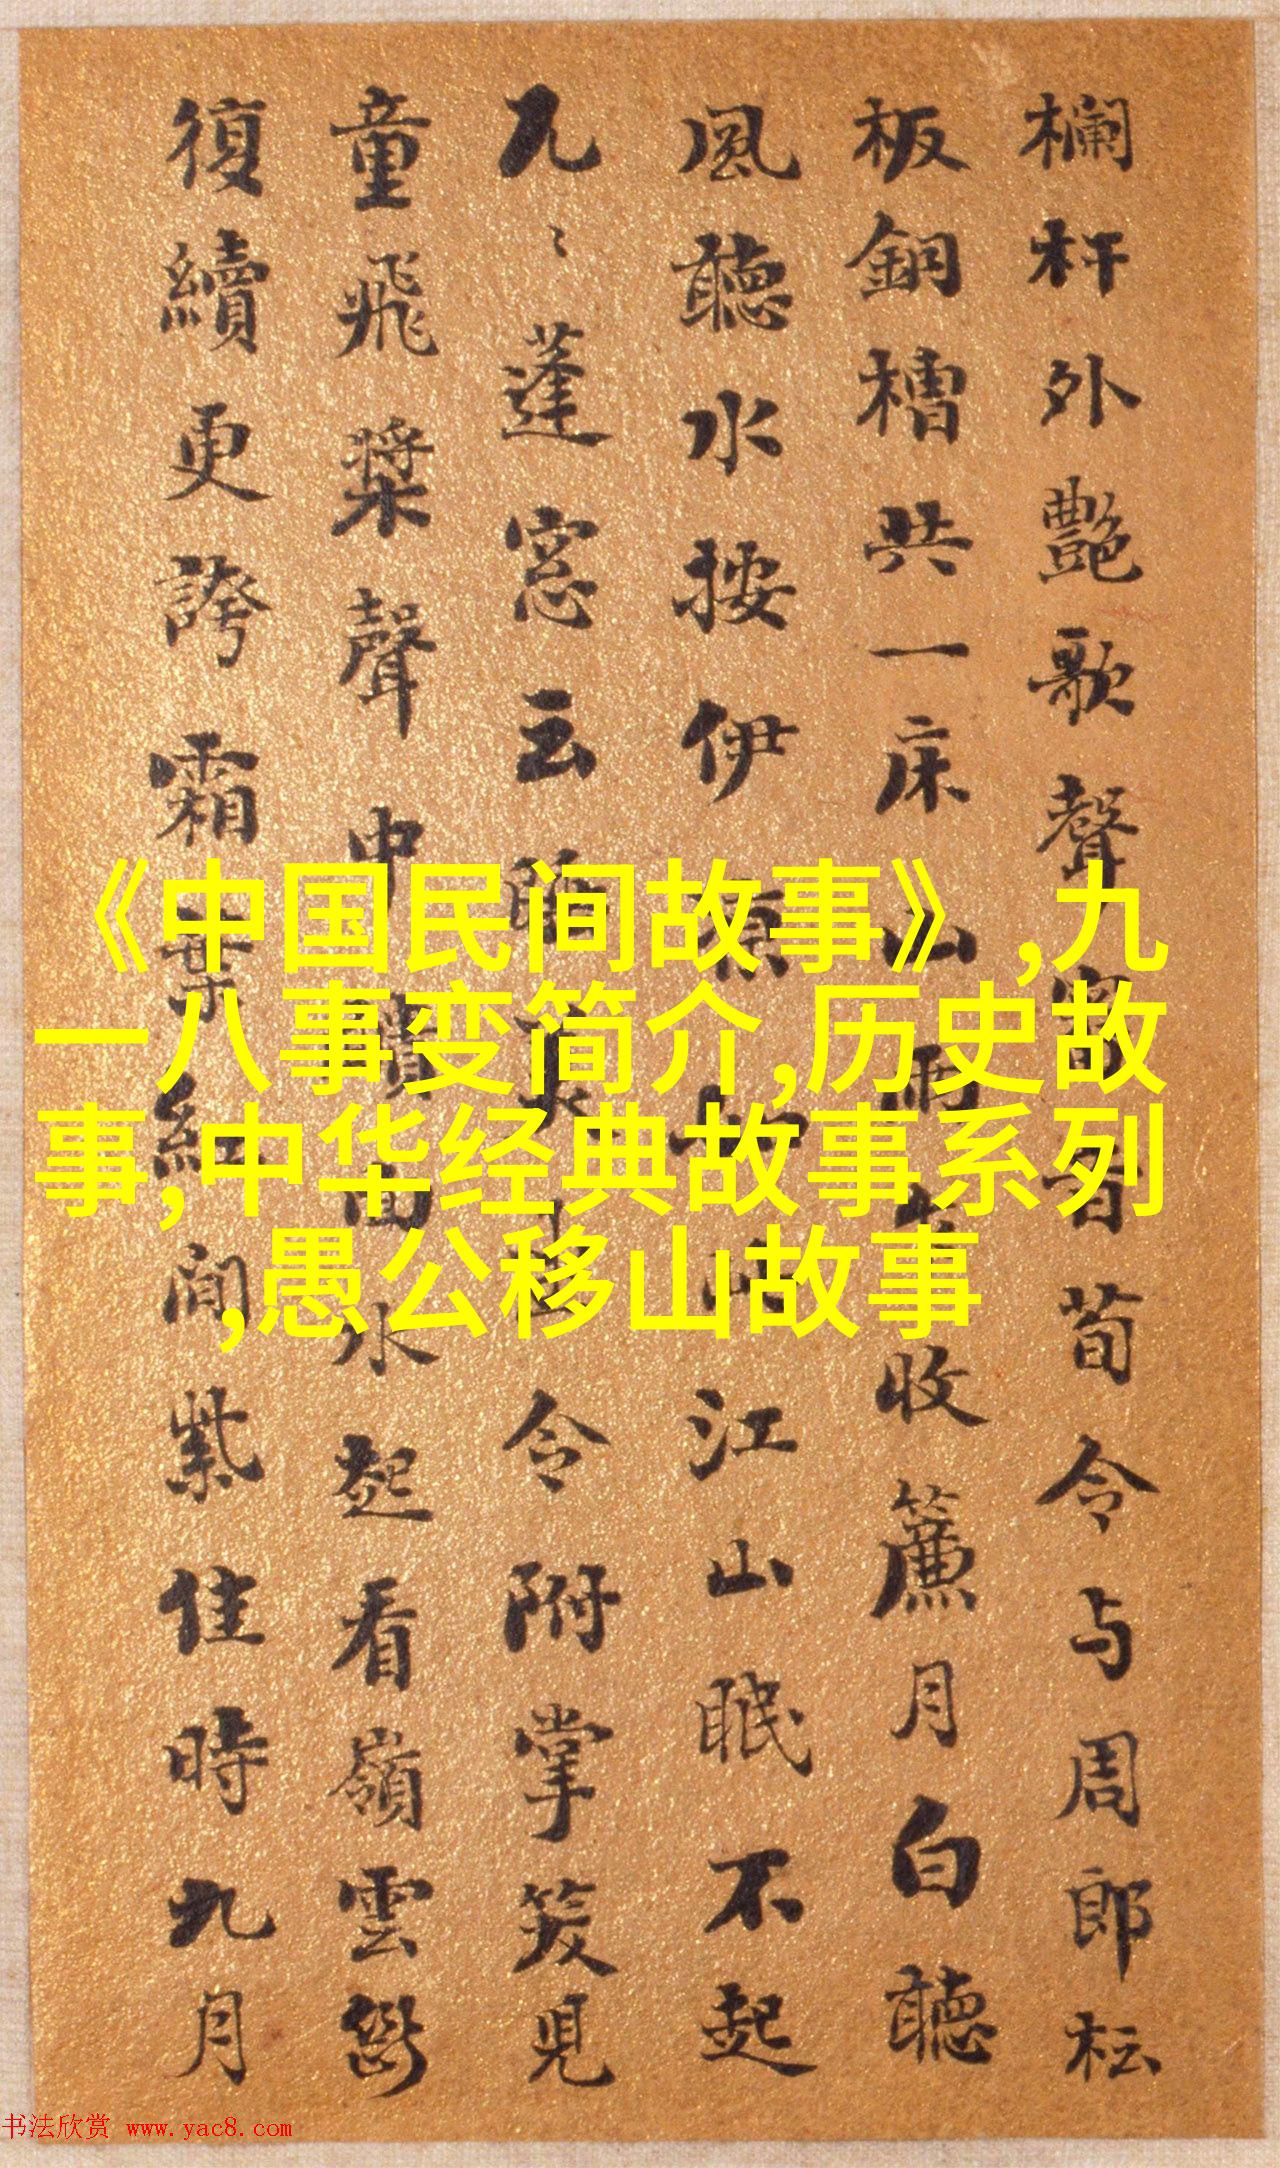 欄杆外艷歌聲荀令与周郎枟
板銅槽共一床山雨收簾月白聽
風聽水按伊涼江山眠不起
九〻蓬窓云令附掌笑見
童飛槳聲中面水起看嶺雲
復續更誇霜葉紅間紫佳時九月
《中国民间故事》,九
一八事变简介,历史故
事,中华经典故事系列
,愚公移山故事
书法欣赏 www.yac8.com